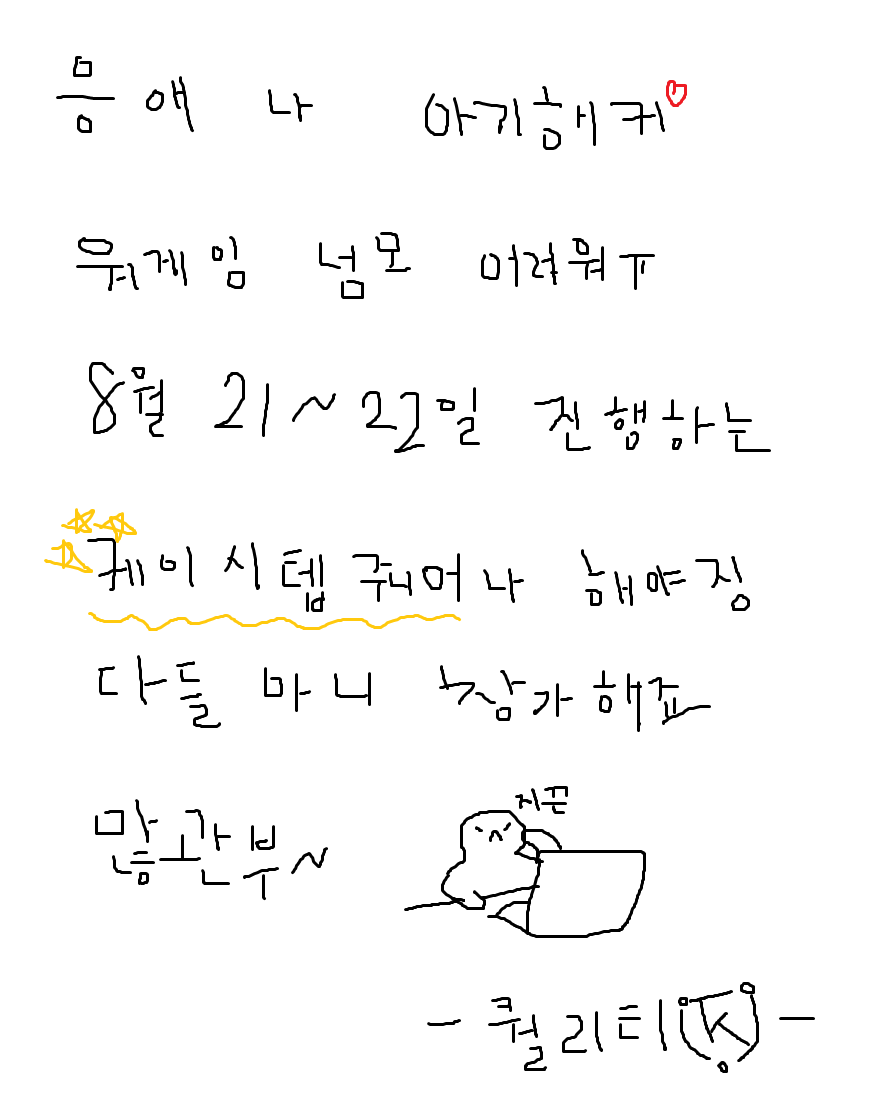 응애 나 아기해커♡
워게임 넘모 어려워ㅠ
8월 21~22일 진행하는
케이시텝 주니어나 해야징
다들 마니 참가해죠
많관부~
지끈
- 퀄리티(K) -